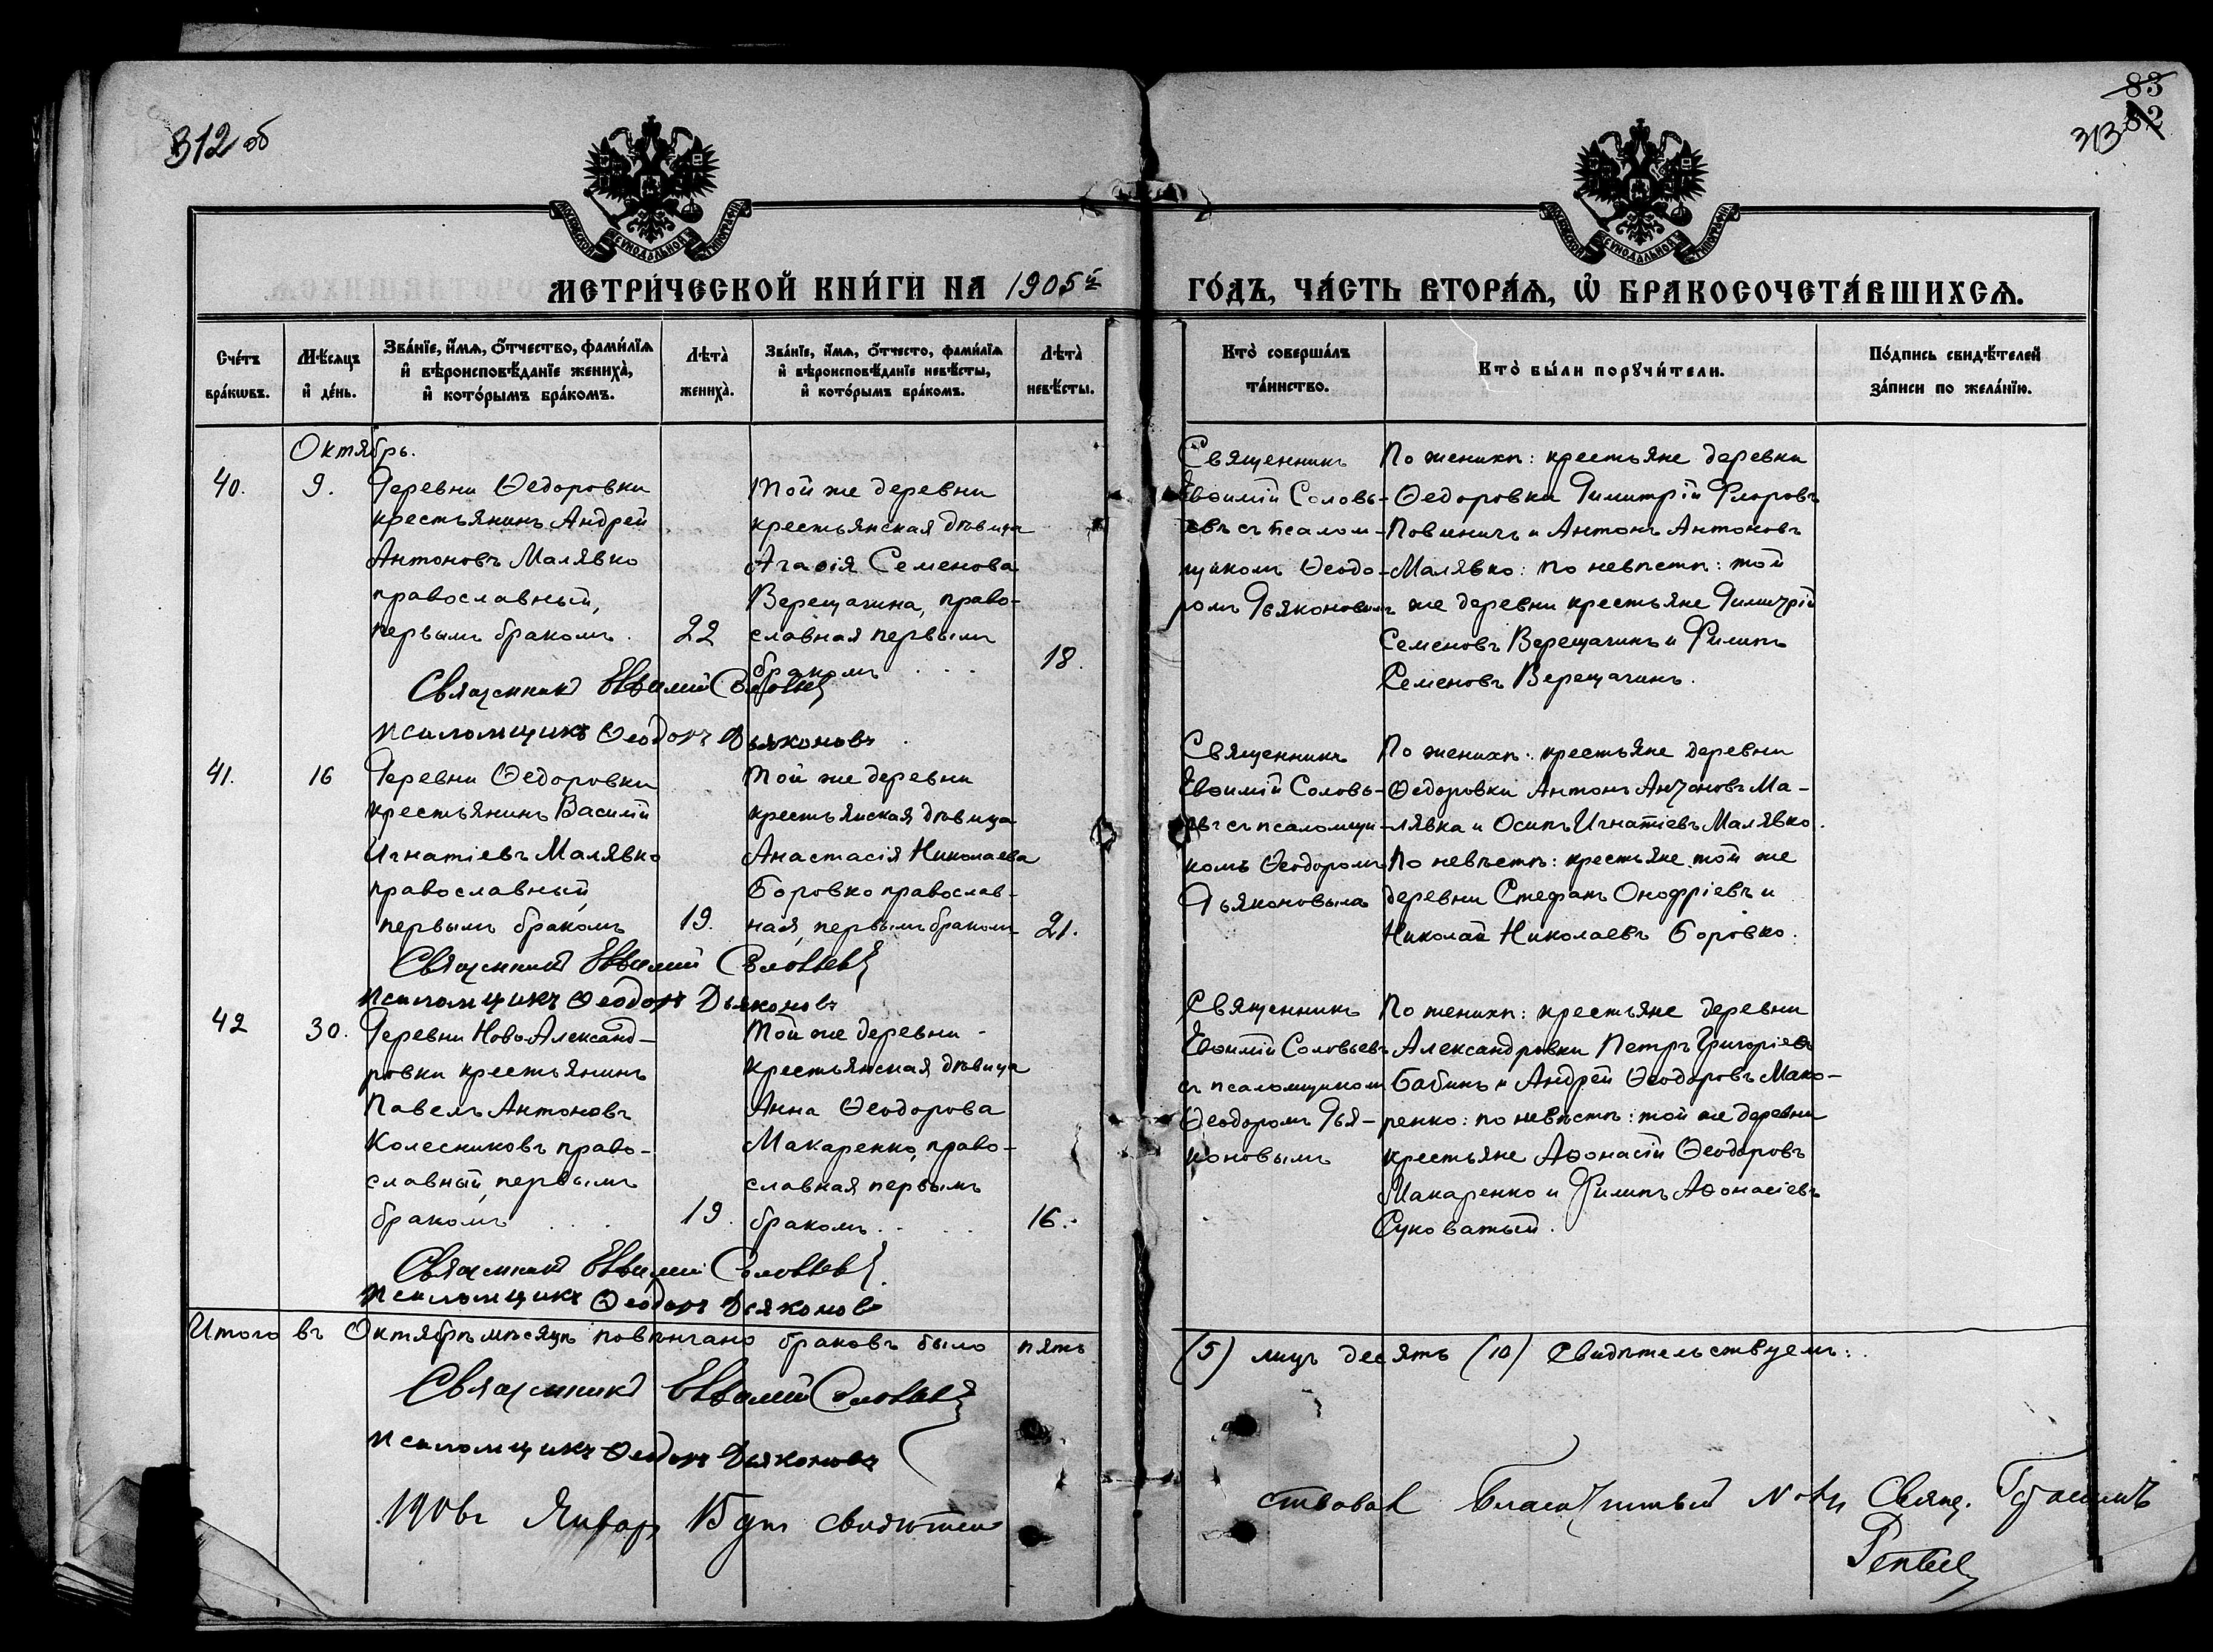 312 об
83
82
313
МОСКОВСКОЙ СУНОДАЛЬНОЙ ТИПОГРАФІИ
МОСКОВСКОЙ СУНОДАЛЬНОЙ ТИПОГРАФІИ
МЕТРИ́ЧЕСКОЙ КНИ́ГИ НА 1905й
ГО́ДЪ, ЧА́СТЬ ВТОРА́Ѧ, Ѡ҆ БРАКОСОЧЕТА́ВШИХСѦ.
Сче́тъ
бра́кѡвъ.
Мѣ́сѧцъ
и҆ де́нь.
Зва́нїе, и҆́мѧ, ѻ҆́тчество, фами́лїѧ
и҆ вѣроисповѣ́данїе жениха̀,
и҆ кото́рымъ бра́комъ.
Лѣ́та̀
жениха̀.
Зва́нїе, и҆́мѧ, ѻ҆́тчесто, фами́лїѧ
и҆ вѣроисповѣ́данїе невѣ́сты,
и҆ кото́рымъ бра́комъ.
Лѣ́та̀
невѣ́сты.
Кто̀ соверша́лъ
та́инство.
Кто̀ бы́ли порꙋчи́тели.
По́дпись свидѣ́телей
за́писи по жела́нїю.
Октябрь.
40.
9.
Деревни Ѳедоровки
крестьянинъ Андрей
Антоновъ Малявко
православный,
первымъ бракомъ.
22
Той же деревни
крестьянская дѣвица
Агаѳія Семенова
Верещагина, право-
славная первымъ
бракомъ . . .
18.
Священникъ
Евѳимій Соловь-
евъ съ псалом-
щикомъ Ѳеодо-
ромъ Дьяконовымъ
По женихѣ: крестьяне деревни
Ѳедоровки Димитрій Флоровъ
Повшничъ и Антонъ Антоновъ
Малявко: по невѣстѣ: той
же деревни крестьяне Димитрій
Семеновъ Верещагинъ и Филипъ
Семеновъ Верещагинъ.
Священникъ Евѳимій Соловьевъ
Псаломщикъ Ѳеодоръ Дьяконовъ.
41.
16
Деревни Ѳедоровки
крестьянинъ Василій
Игнатіевъ Малявко
православный,
первымъ бракомъ
19.
Той же деревни
крестьянская дѣвица
Анастасія Николаева
Боровко православ-
ная, первымъ бракомъ
21.
Священникъ
Евѳимій Соловь-
евъ съ псаломщи-
комъ Ѳеодоромъ
Дьяконовымъ
По женихѣ: крестьяне деревни
Ѳедоровки Антонъ Антоновъ Ма-
лявка и Осипъ Игнатіевъ Малявко.
По невѣстѣ: крестьяне той же
деревни Стефанъ Онофріевъ и
Николай Николаевъ Боровко.
Священникъ Евѳимій Соловьевъ
Псаломщикъ Ѳеодоръ Дьяконовъ
42
30.
Деревни Ново-Александ-
ровки крестьянинъ
Павелъ Антоновъ
Колесниковъ право-
славный, первымъ
бракомъ . . .
19.
Той же деревни -
крестьянская дѣвица
Анна Ѳеодорова
Макаренко, право-
славная первымъ
бракомъ . . .
16.
Священникъ
Евѳимій Соловьевъ
съ псаломщикомъ
Ѳеодоромъ Дья-
коновымъ
По женихѣ: крестьяне деревни
Александровки Петръ Григоріевъ
Бабинъ и Андрей Ѳеодоровъ Мака-
ренко: по невѣстѣ: той же деревни
крестьяне Аѳонасій Ѳеодоровъ
Макаренко и Филипъ Аѳонасіевъ
Суковатый.
Священникъ Евѳимій Соловьевъ.
Псаломщикъ Ѳеодоръ Дьяконовъ
Итого въ Октябрѣ мѣсяцѣ повѣнчано браковъ было пять
(5) лицъ десять (10) Свидѣтельствуемъ:
Священникъ Евѳимій Соловьевъ
Псаломщикъ Ѳеодоръ Дьяконовъ
1906г Январ 15 дня свидѣтель
ствовалъ Благочинный Свящ.